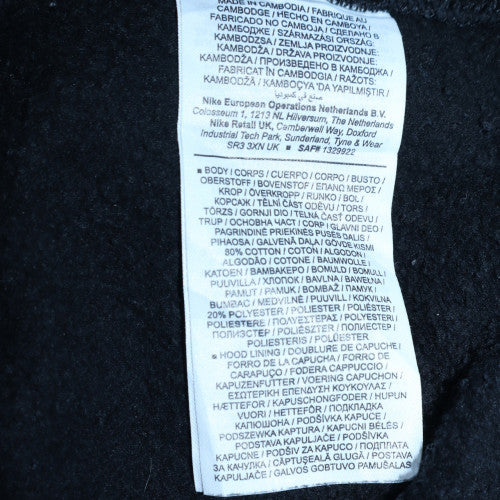 MADE IN CAMBODIA / FABRIQUE AU
CAMBODGE / HECHO EN CAMBOYA /
FABRICADO NO CAMBOJA / СДЕЛАНО В
КАМБОДЖЕ / SZÁRMAZÁSI ORSZÁG:
KAMBODZSA / ZEMLJA PROIZVODNJE:
KAMBODŽA / DRŽAVA PROIZVODNJE:
KAMBODŽA / ПРОИЗВЕДЕНО В КАМБОДЖА /
FABRICAT ÎN CAMBODGIA / RAŽOTS:
KAMBODŽĀ / KAMBOÇYA 'DA YAPILMIŞTIR /
صنع في كمبوديا
Nike European Operations Netherlands B.V.
Colosseum 1, 1213 NL Hilversum, The Netherlands
Nike Retail UK, Camberwell Way, Doxford
Industrial Tech Park, Sunderland, Tyne & Wear
SR3 3XN UK ■ SAF# 1329922
■ BODY / CORPS / CUERPO / CORPO / BUSTO /
OBERSTOFF / BOVENSTOF / ΕΠΑΝΩ ΜΕΡΟΣ /
KROP / ÖVERKROPP / RUNKO / BOL /
КОРСАЖ / TĚLNÍ ČÁST ODĚVU / TORS /
TÖRZS / GORNJI DIO / TELNÁ ČASŤ ODEVU /
TRUP / ОСНОВНА ЧАСТ / CORP / GLAVNI DEO /
PAGRINDINĖ PRIEKINĖS PUSĖS DALIS /
PIHAOSA / GALVENĀ DAĻA / GÖVDE KISMI
80% COTTON / COTON / ALGODON /
ALGODÃO / COTONE / BAUMWOLLE /
KATOEN / ΒΑΜΒΑΚΕΡΟ / BOMULD / BOMULL /
PUUVILLA / ХЛОПОК / BAVLNA / BAWEŁNA /
PAMUT / PAMUK / BOMBAŽ / ПАМУК /
BUMBAC / MEDVILNĖ / PUUVILL / KOKVILNA
20% POLYESTER / POLYESTER / POLIÉSTER /
POLIESTERE / ΠΟΛΥΕΣΤΕΡΑΣ / POLYESTERI /
ПОЛИЭСТЕР / POLIÉSZTER / ПОЛИЕСТЕР /
POLIESTERIS / POLÜESTER
■ HOOD LINING / DOUBLURE DE CAPUCHE /
FORRO DE LA CAPUCHA / FORRO DE
CARAPUÇO / FODERA CAPPUCCIO /
KAPUZENFUTTER / VOERING CAPUCHON /
ΕΣΩΤΕΡΙΚΗ ΕΠΕΝΔΥΣΗ ΚΟΥΚΟΥΛΑΣ /
HÆTTEFOR / KAPUSCHONGFODER / HUPUN
VUORI / HETTEFÔR / ПОДКЛАДКА
КАПЮШОНА / PODŠÍVKA KAPUCE /
PODSZEWKA KAPTURA / KAPUCNI BÉLÉS /
PODSTAVA KAPULJAČE / PODŠÍVKA
KAPUCNE / PODŠIV ZA KAPUCO / ПОДПЛАТА
ЗА КАЧУЛКА / CĂPTUŞEALĂ GLUGĂ / POSTAVA
KAPULJAČE / GALVOS GOBTUVO PAMUŠALAS